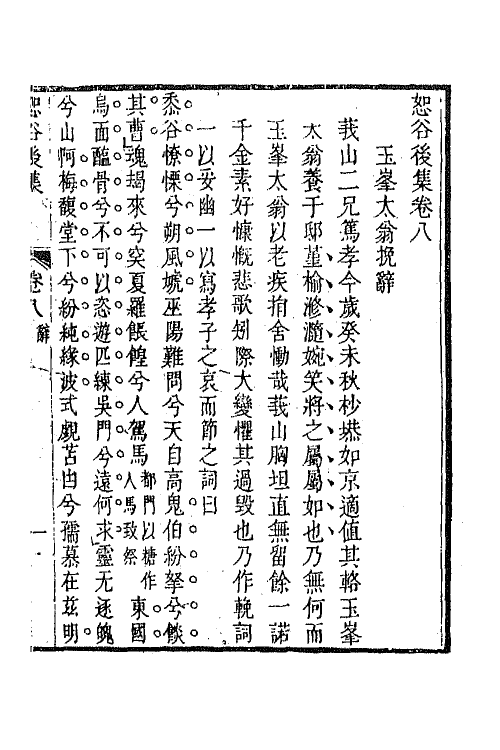 恕谷後集卷八
玉峯太翁挽辭
莪山二兄篤孝今歲癸未秋杪塨如京適值其輅玉峯
太翁養于邸菫榆滫瀡婉笑將之屬屬如也乃無何而
玉峯太翁以老疾捐舍慟哉莪山胸坦直無留餘一諾
千金素好慷慨悲歌矧際大變懼其過毀也乃作輓詞
一以妥幽一以寫孝子之哀而節之詞曰
黍谷憭慄兮朔風號巫陽難問兮天自高鬼伯紛拏兮餤
其曹魂朅來兮突夏羅餦餭兮人駕馬都門以糖作人馬致祭東國
烏面醢骨兮不可以恣遊匹練吳門兮遠何求靈無逐魄
兮山阿梅馥堂下兮紛純緣波式覷苫凷兮孺慕在茲明
恕谷後集 卷八 辭 一